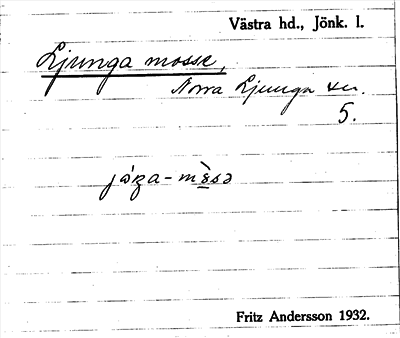 Västra hd., Jönk. l.
Ljunga mosse,
Norra Ljunga sn.
5.
Fritz Andersson 1932.